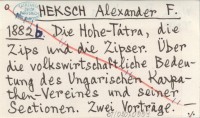 HEKSCH Alexander F.
1882b. Die Hohe-Tátra, die
Zips und die Zipser. Über
die volkswirtschaftliche Bedeu-
tung des Ungarischen Karpa-
then-Vereines und seiner
Sectionen. Zwei Vorträge. -